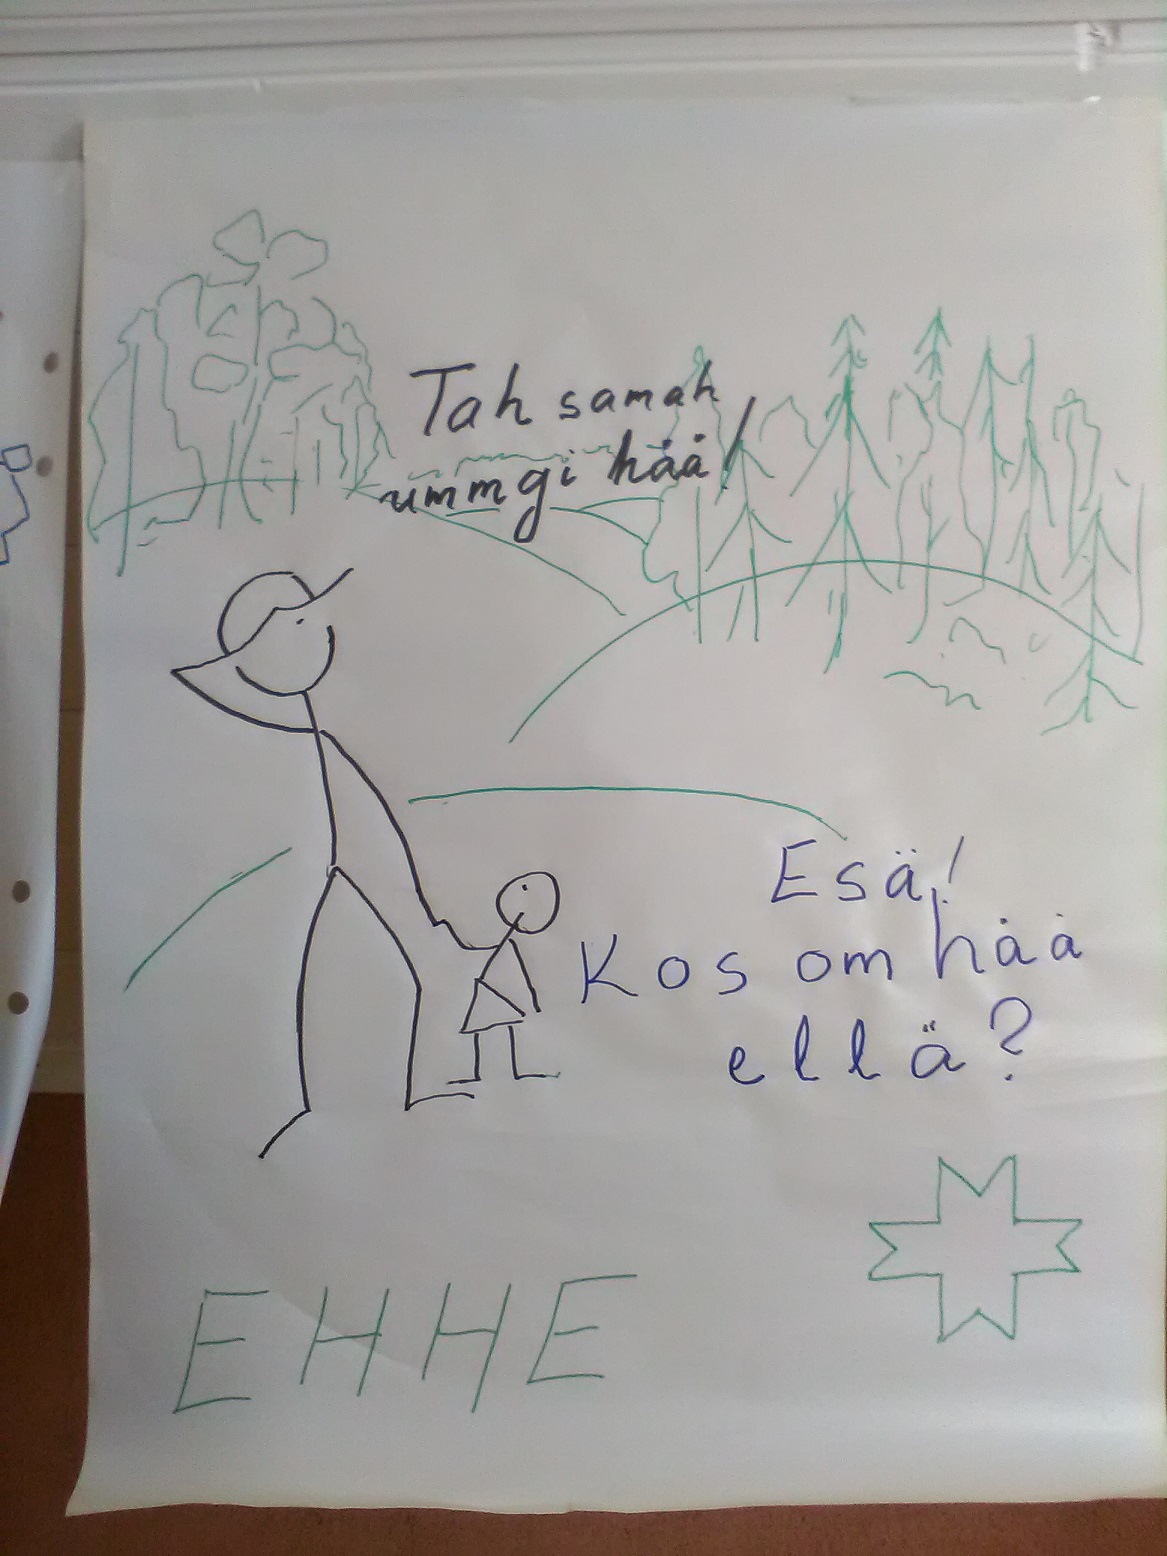 Tah samah
ummgi hää!
Esä!
Kos om hää
ellä?
EHHE